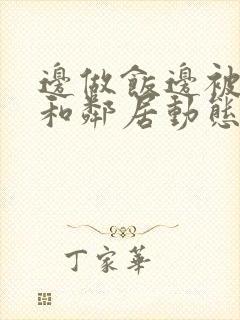 邊做飯邊被
和鄰居動態
丁家華